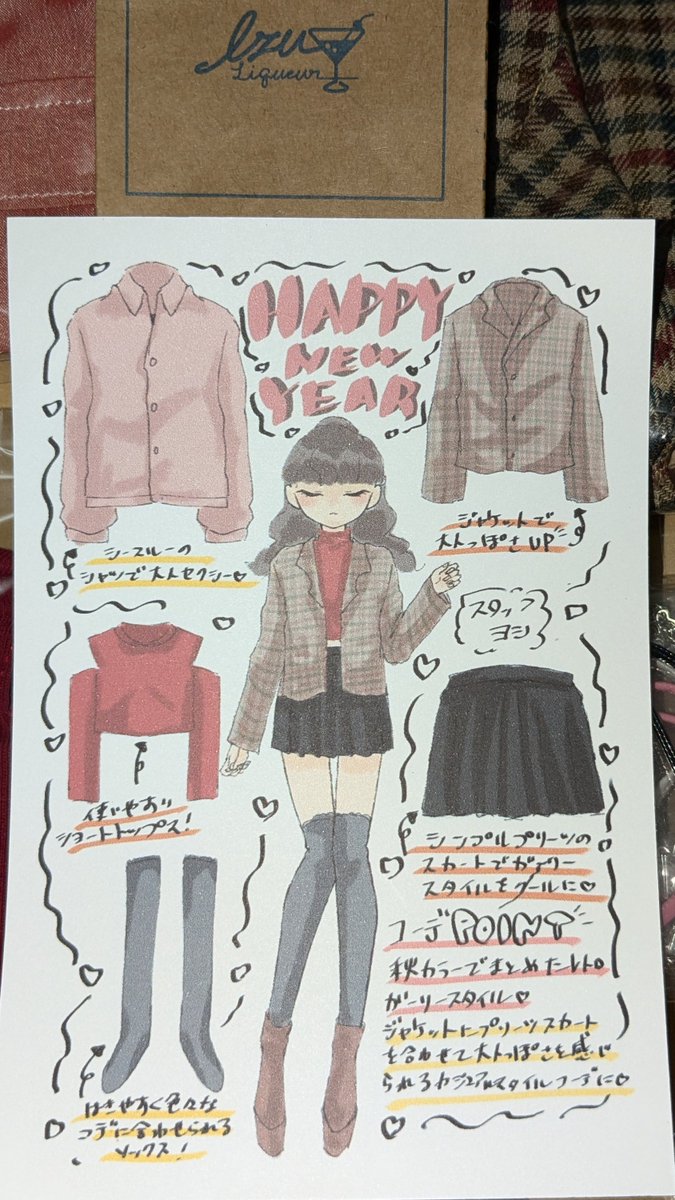 Izu
Liqueur
HAPPY
NEW
YEAR
シースルーの
シャツで大人セクシー♡
ジャケットで
大人っぽさUP
スタッフ
ヨシ
使いやすい
ショートトップス!
シンプルプリーツの
スカートでガーリー
スタイルをクールに♡
コーデPOINT
秋カラーでまとめたレトロ
ガーリースタイル♡
ジャケットにプリーツスカート
を合わせて大人っぽさを感じ
られるカジュアルスタイルコーデに♡
はきやすく色々な
コーデに合わせられる
ソックス!